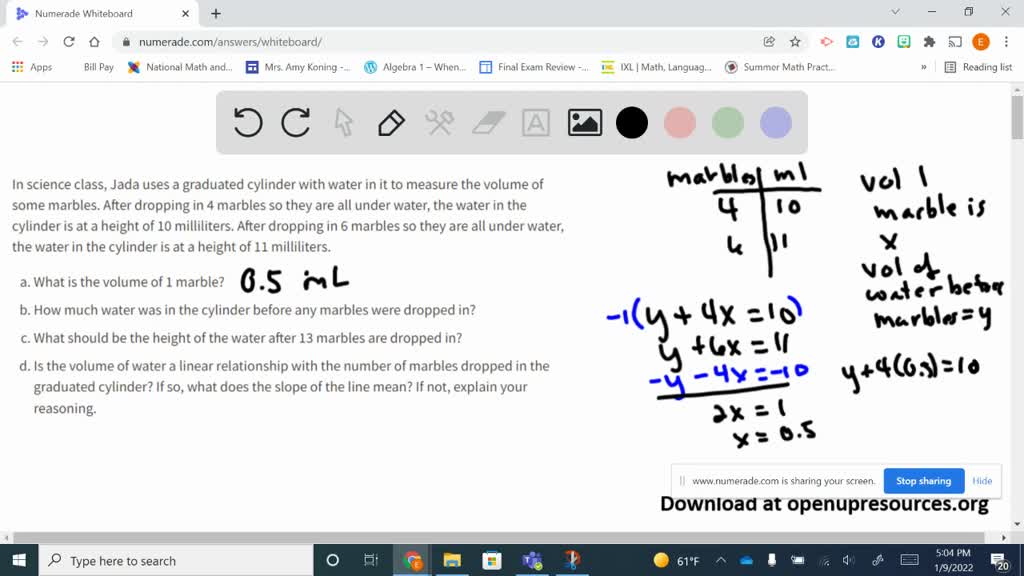 Numerade Whiteboard
numerade.com/answers/whiteboard/
E
Apps
Bill Pay
National Math and...
Mrs. Amy Koning -...
Algebra 1 – When...
Final Exam Review -...
IXL | Math, Languag...
Summer Math Pract...
»
Reading list
A
In science class, Jada uses a graduated cylinder with water in it to measure the volume of
some marbles. After dropping in 4 marbles so they are all under water, the water in the
cylinder is at a height of 10 milliliters. After dropping in 6 marbles so they are all under water,
the water in the cylinder is at a height of 11 milliliters.
a. What is the volume of 1 marble? 0.5 mL
b. How much water was in the cylinder before any marbles were dropped in?
c. What should be the height of the water after 13 marbles are dropped in?
d. Is the volume of water a linear relationship with the number of marbles dropped in the
graduated cylinder? If so, what does the slope of the line mean? If not, explain your
reasoning.
marbles ml
4 10
6 11
vol 1
marble is
x
vol of
water before
marbles = y
-1(y + 4x = 10)
y + 6x = 11
-y - 4x = -10
2x = 1
x = 0.5
y + 4(0.5) = 10
www.numerade.com is sharing your screen.
Stop sharing
Hide
Download at openupresources.org
Type here to search
61°F
5:04 PM
1/9/2022
20